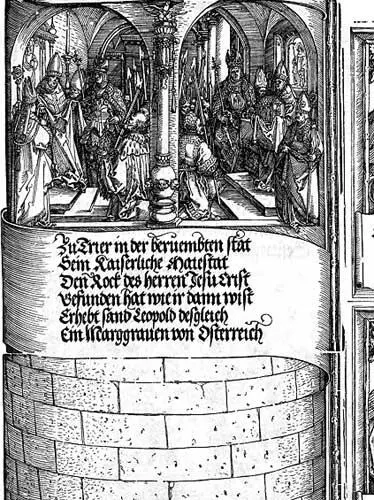 Zu Trier in der beruembten stat
Sein Kaiserliche Maiestat
Den Rock des herren Jesu Crist
Gefunden hat wie ir dann wist
Erhebt sand Leopold desgleich
Ein Marggrauen von Osterreich